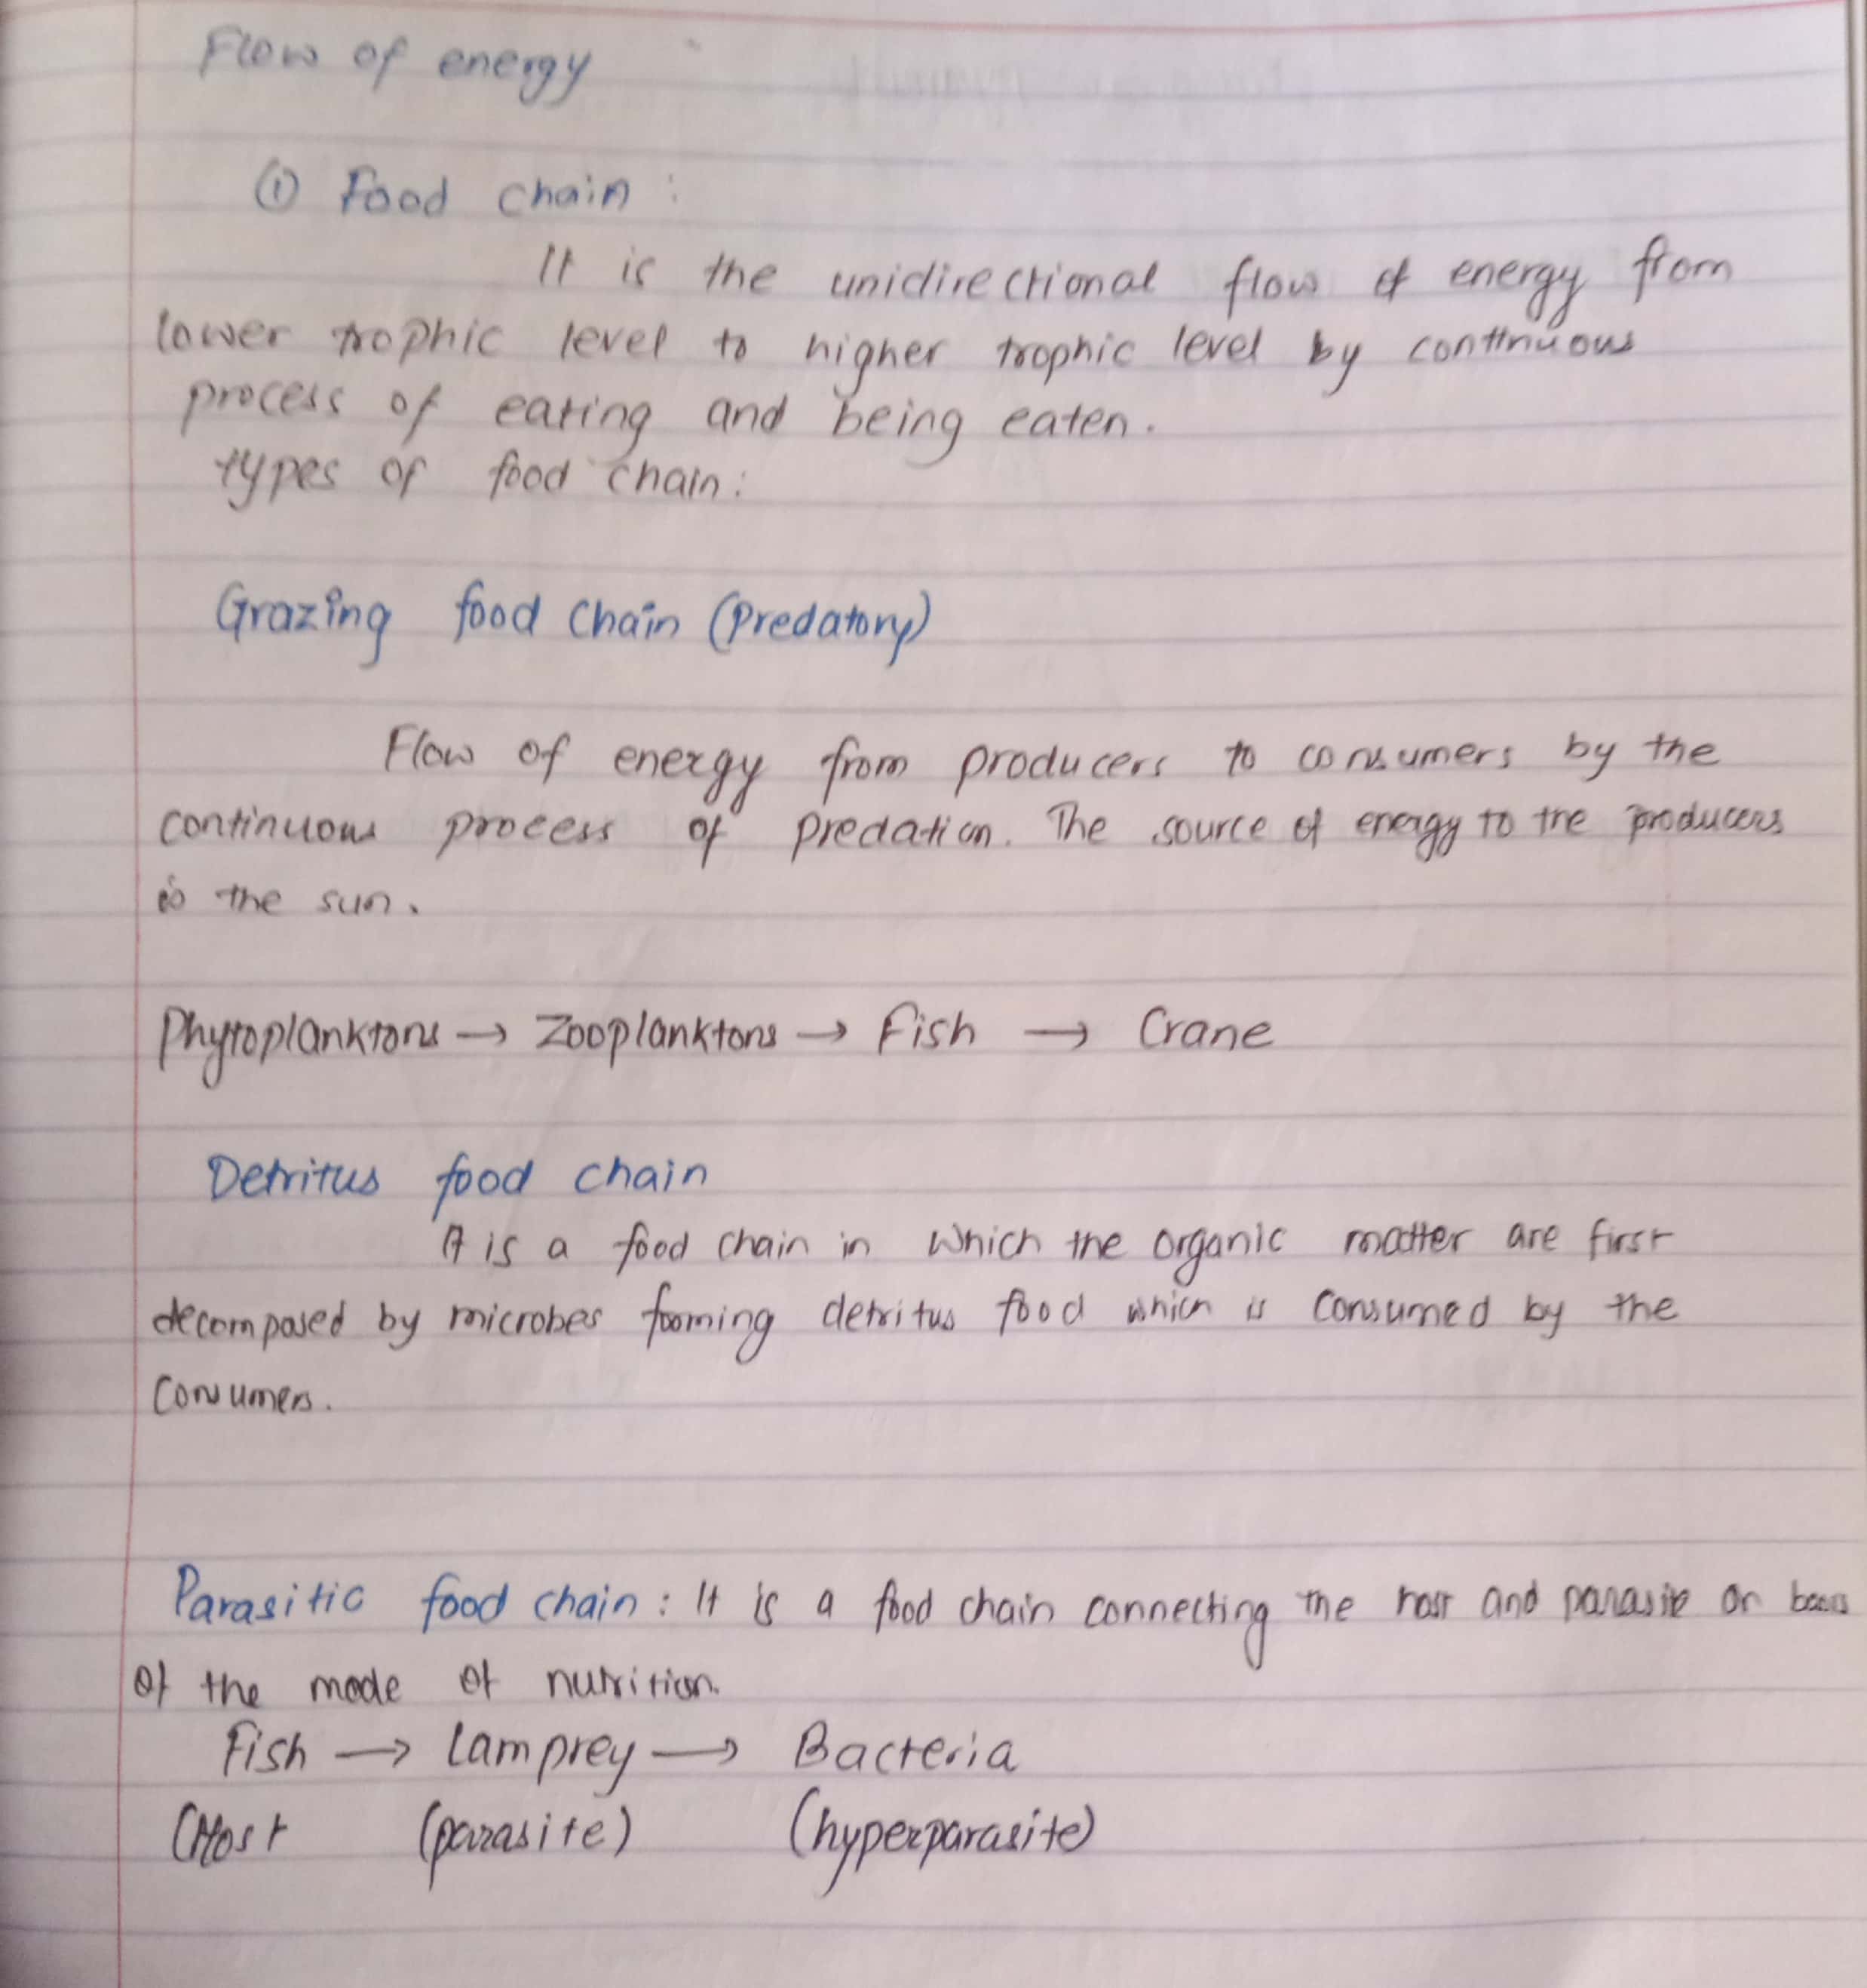 Flow of energy
① Food chain :
It is the unidirectional flow of energy from
lower trophic level to higher trophic level by continuous
process of eating and being eaten.
types of food chain:
Grazing food chain (Predatory)
Flow of energy from producers to consumers by the
continuous process of predation. The source of energy to the producers
is the sun.
Phytoplanktons → Zooplanktons → Fish → Crane
Detritus food chain
It is a food chain in which the organic matter are first
decomposed by microbes forming detritus food which is consumed by the
consumers.
Parasitic food chain : It is a food chain connecting the host and parasite on basis
of the mode of nutrition.
Fish → Lamprey → Bacteria
(Host (parasite) (hyperparasite)